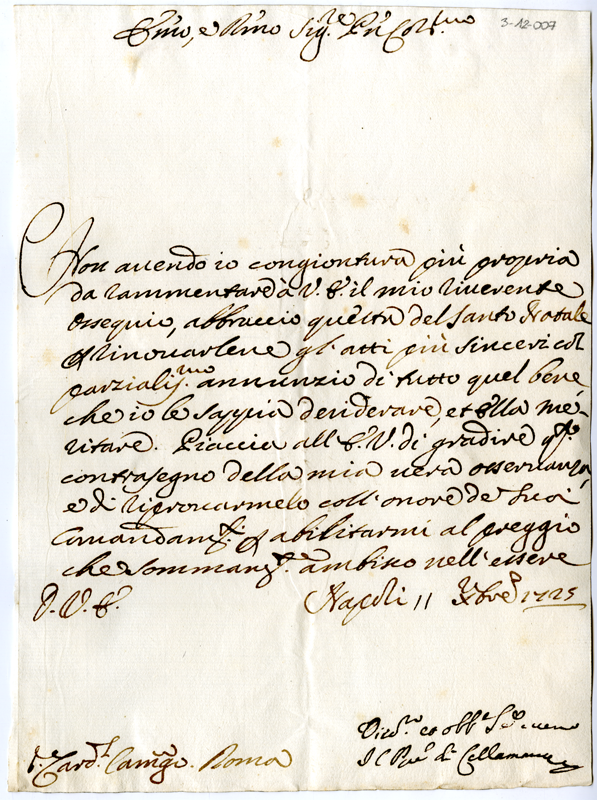 Emo, e Rmo Sig.re P̃n Col.mo
3-12-007
Non auendo io congiontura più propria
da rammentare à V. E. il mio riuerente
ossequio, abbraccio questa del Santo Natale
p̱ rinouarlene gl'atti più sinceri col
parzialis.mo annunzio di tutto quel bene,
che io le sappia desiderare, et Ella me-
ritare. Piaccia all'E. V. di gradire q.to
contrasegno della mia uera osseruanza,
e di riprouarmelo coll'onore de suoi
Comandam.ti p̱ abilitarmi al preggio
che sommam.te ambisco nell'essere
D. V. E.
Napoli 11 Xbre 1725
Diu.mo et obb.o
Il Pñe di Cellamare
Card.l Roma